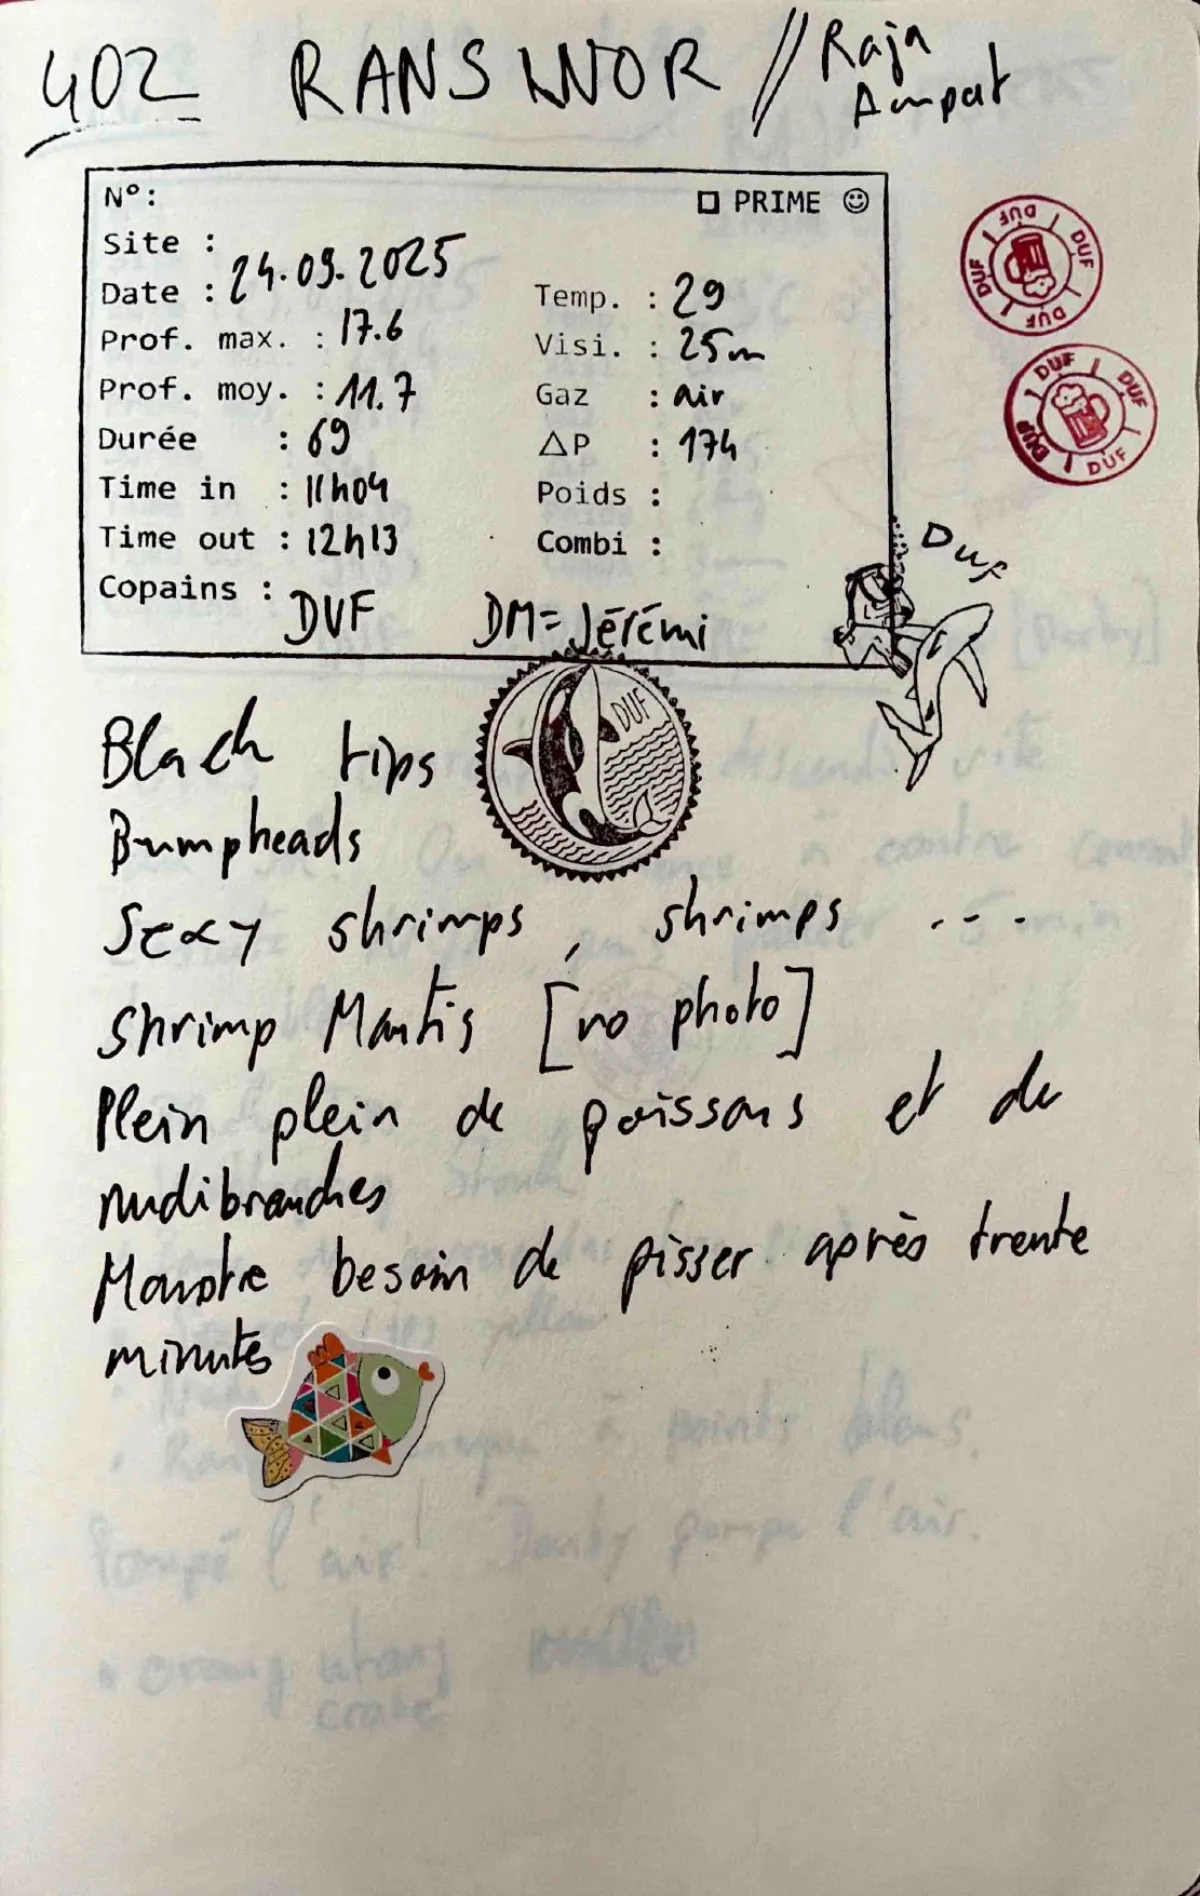 402 RANSWOR // Raja Ampat
N°: □ PRIME ☺
Site :
Date : 24.09.2025
Temp. : 29
Prof. max. : 17.6
Visi. : 25m
Prof. moy. : 11.7
Gaz : air
Durée : 69
△P : 174
Time in : 11h04
Poids :
Time out : 12h13
Combi :
Copains : DUF DM= Jérémi
DUF DUF DUF DUF DUF
DUF DUF DUF DUF DUF
Duf
DUF
Black tips
Bumpheads
Sexy shrimps, shrimps ...
Shrimp Mantis [no photo]
Plein plein de poissons et de
nudibranches
Monstre besoin de pisser après trente
minutes